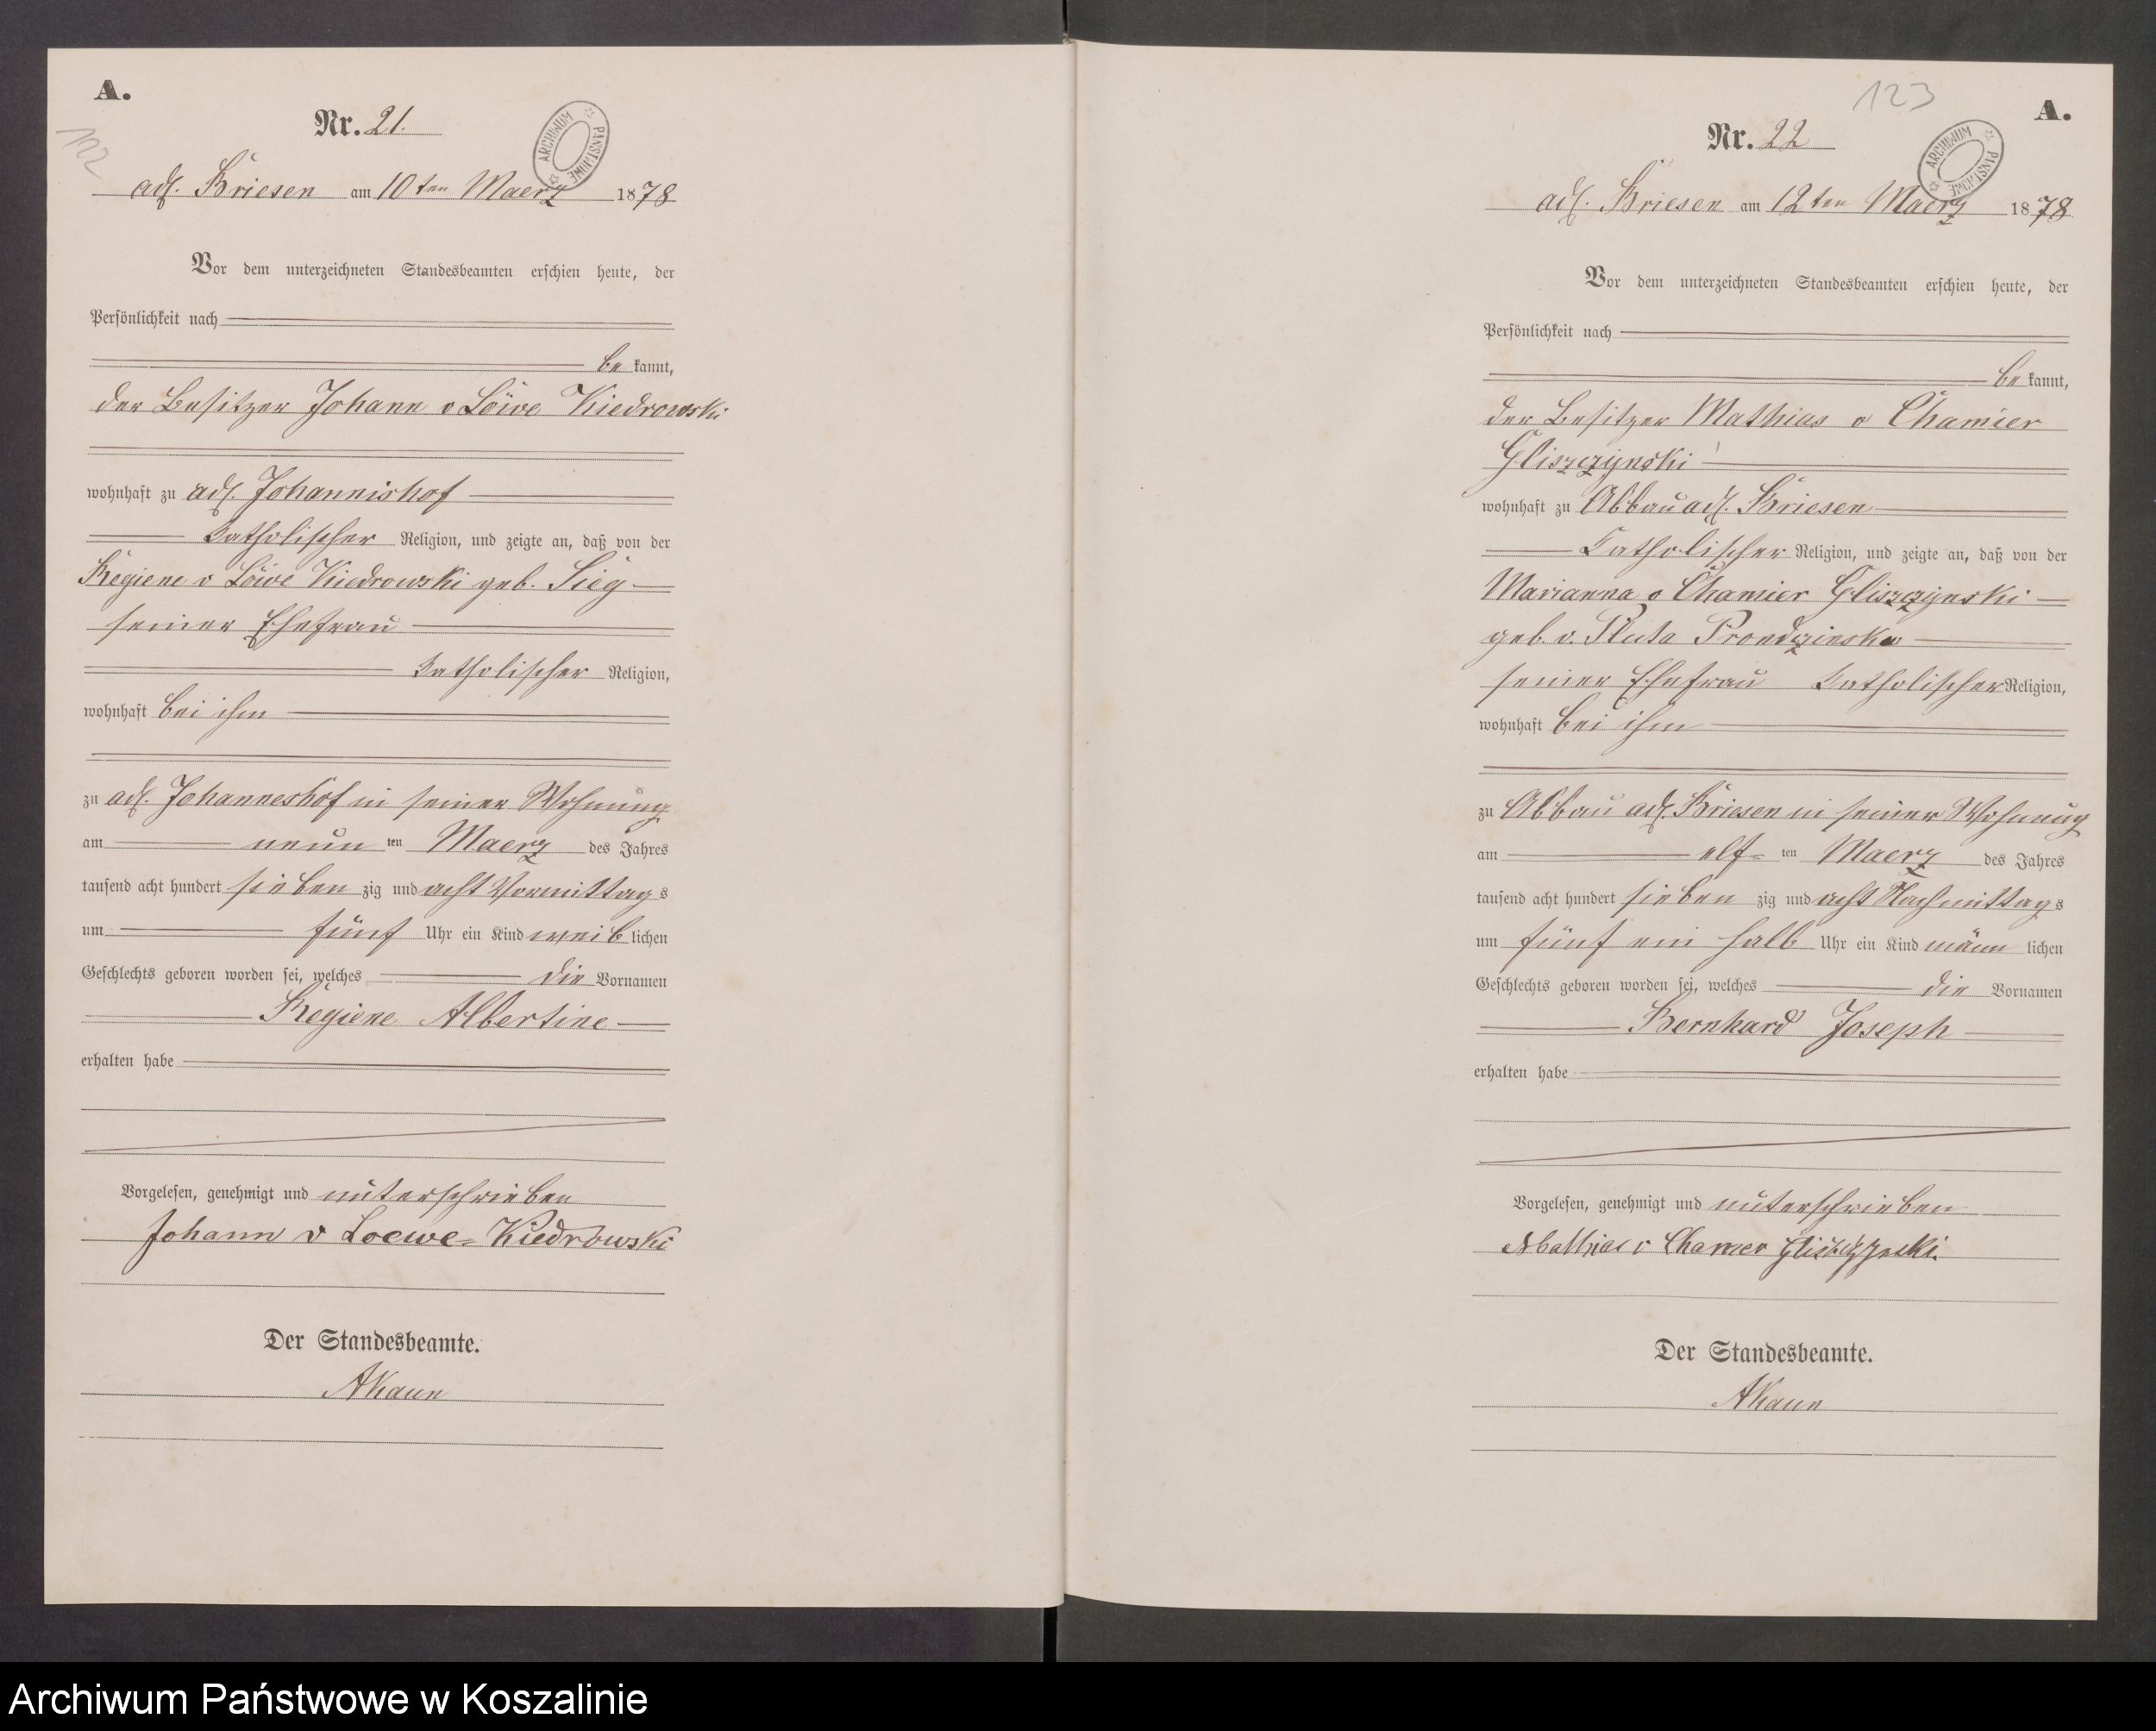 A.
122
Nr. 21.
ARCHIWUM PAŃSTWOWE
adl. Briesen am 10ten Maerz 1878
Vor dem unterzeichneten Standesbeamten erschien heute, der
Persönlichkeit nach
be kannt,
der Besitzer Johann v Löwe Kiedrowski
wohnhaft zu adl. Johannishof
katholischer Religion, und zeigte an, daß von der
Regiene v Löwe Kiedrowski geb. Sieg
seiner Ehefrau
katholischer Religion,
wohnhaft bei ihm
zu adl. Johanneshof in seiner Wohnung
am neun ten Maerz des Jahres
tausend acht hundert sieben zig und acht Vormittags
um fünf Uhr ein Kind weib lichen
Geschlechts geboren worden sei, welches die Vornamen
Regiene Albertine
erhalten habe
Vorgelesen, genehmigt und unterschrieben
Johann v Loewe-Kiedrowski
Der Standesbeamte.
AKaun
123
A.
Nr. 22
ARCHIWUM PAŃSTWOWE
adl. Briesen am 12ten Maerz 1878
Vor dem unterzeichneten Standesbeamten erschien heute, der
Persönlichkeit nach
be kannt,
der Besitzer Mathias v Chamier
Gliszczynski
wohnhaft zu Abbau adl. Briesen
katholischer Religion, und zeigte an, daß von der
Marianna v Chamier Gliszczynski
geb. v. Pluta Prondzinska
seiner Ehefrau katholischer Religion,
wohnhaft bei ihm
zu Abbau adl. Briesen in seiner Wohnung
am elf- ten Maerz des Jahres
tausend acht hundert sieben zig und acht Nachmittags
um fünf ein halb Uhr ein Kind männ lichen
Geschlechts geboren worden sei, welches die Vornamen
Bernhard Joseph
erhalten habe
Vorgelesen, genehmigt und unterschrieben
Mathias v Chamier Gliszczynski.
Der Standesbeamte.
AKaun
Archiwum Państwowe w Koszalinie